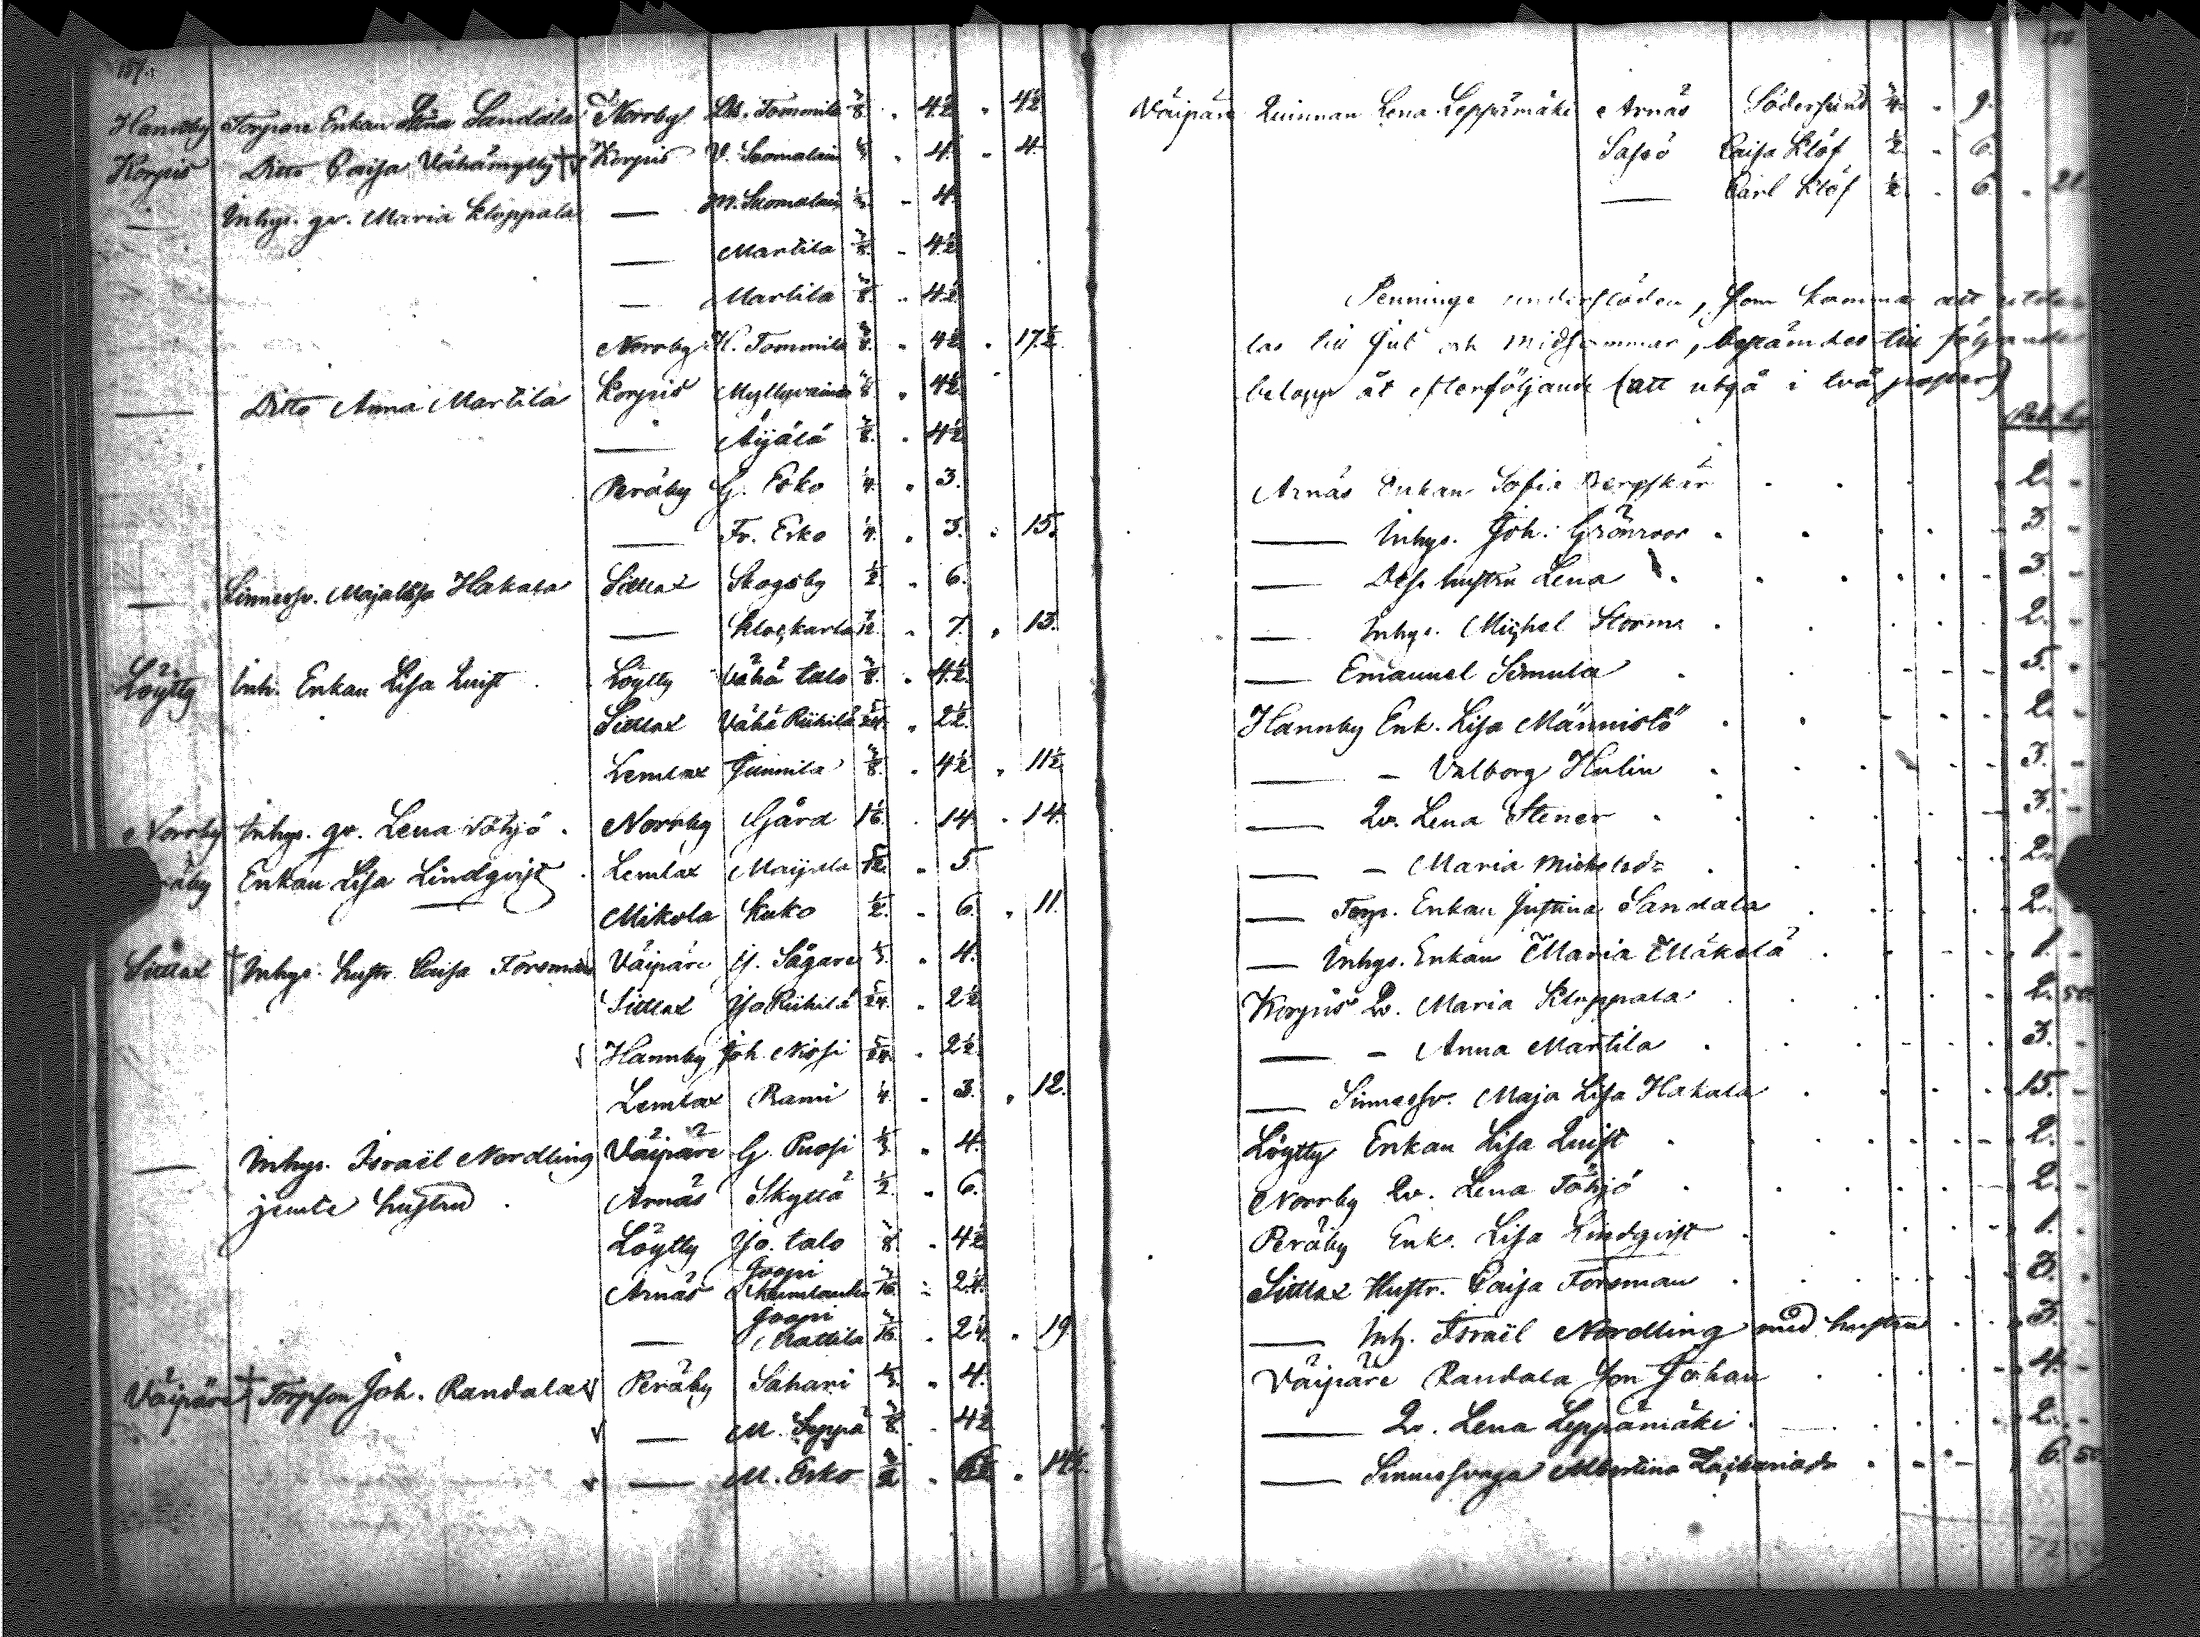 157.
Hannby Torpare Enkan Lena Sandala Norrby Lill. Tommila 3/8 " 4½ " 4½
Korpis Ditto Caisa Vähämylly † Korpis V. Suomalain 1/3 " 4. " 4.
— Inhys. qv. Maria Kloppala — M. Suomalain 1/3 " 4.
— Martila 3/8. " 4½
— Martila 3/8. " 4½
Norrby K. Tommila 3/8. " 4½ " 17½.
— Ditto Anna Martila Korpis Myllyvainio 3/8 " 4½
— Äijälä 3/8. " 4½
Peräby G. Erko ¼. " 3.
— Fr. Erko ¼. " 3. " 15.
— Sinnessv. Majalisa Hakala Sittlax Skogsby ½. " 6.
— Klockarla 7/12. " 7. " 13.
Löytty Inh. Enkan Lisa Quist Löytty Vähä talo 3/8. " 4½.
Sittlax Vähä Riihilä 5/24. " 2½.
Lemlax Junnila 3/8. " 4½ " 11½
Norrby Inhys. qv. Lena Töhjö. Norrby Gård 1⅙. " 14. " 14.
räby Enkan Lisa Lindqvist. Lemlax Maijala 5/12. " 5.
Mikola Kuko ½. " 6. " 11.
Sittlax † Inhys. hustr. Caisa Forsman Väipäre G. Sågare 1/3. " 4.
Sittlax Yo Riihilä 5/24. " 2½
Hannby Joh. Nissi 5/24. " 2½.
Lemlax Rami ¼. " 3. " 12.
— Inhys. Israël Nordling Väipäre G. Puosi 1/3. " 4.
jemte hustru. Arnäs Skyttä ½. " 6.
Löytty Yo. talo 3/8. " 4½
Arnäs Joopi 3/16. " 2¼.
— Joopi Mattila 3/16. " 2¼. " 19
Väipäre † Torpson Joh. Randala Peräby Sahari 1/3. " 4.
— M. Seppä 3/8. " 4½
— M. Erko " 14½.
Väipäre Quinnan Lena Leppämäki Arnäs Södersund ¾. " 9.
Sassö Caisa Klöf ½. " 6.
— Carl Klöf ½. " 6. " 21.
Penninge understöden, som komma att utde
las till Jul och Midsommar, bestämdes till följande
belopp åt efterföljande (att utgå i två poster)
Arnäs Enkan Sofia Bergskär 2. -
— Inhys. Joh. Grönroos 3 -
— Dess hustru Lena 3. -
— Inhys. Michel Storm 2. -
— Emanuel Simula 5. -
Hannby Enk. Lisa Männistö 2. -
— - Valborg Hulin 3. -
— Qv. Lena Stener 3. -
— - Maria Michelsd: 2. -
— Torp. Enkan Justina Sandala 2. -
— Inhys. Enkan Maria Mäkelä 1. -
Korpis Qv. Maria Kloppala 2. 50
— - Anna Martila 3. -
— Sinnessv. Maja Lisa Hakala 15. -
Löytty Enkan Lisa Quist 2. -
Norrby Qv. Lena Töhjö 2. -
Peräby Enk. Lisa Lindqvist 1. -
Sittlax Hustr. Caisa Forsman 3. -
— Inh. Israël Nordling med hustru 3. -
Väipäre Randala son Johan 4. -
— Qv. Lena Leppämäki 2. -
— Sinnessvaga Albertina Zachariad: 6. 50
72